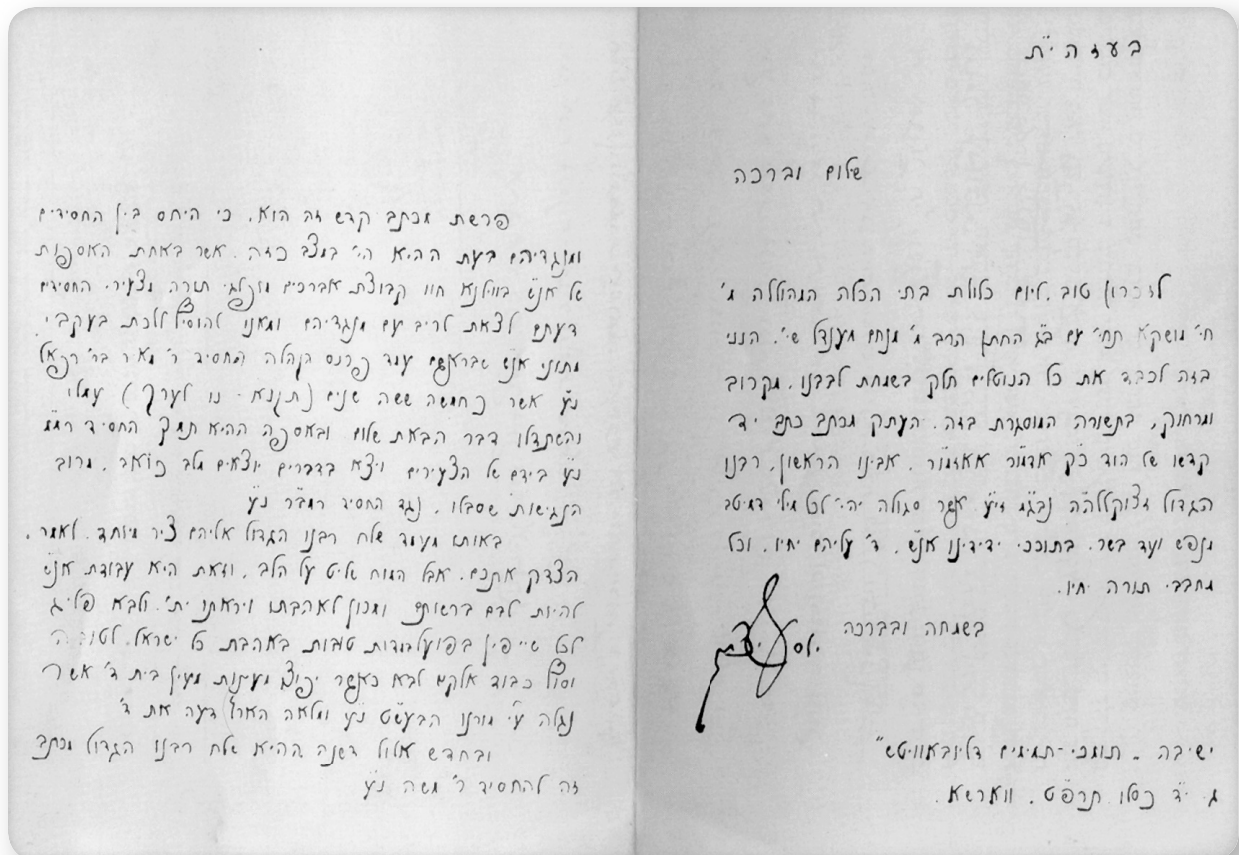 בעזהי"ת
שלום וברכה
לזכרון טוב, ליום כלולת בתי הכלה המהוללה מ'
חי' מושקא תחי' עם ב"ג החתן הרב מ' מנחם מענדל שי'. הנני
בזה לכבד את כל הנוטלים חלק בשמחת לבבנו, מקרוב
ומרחוק, בתשורה המוסגרת בזה. העתק מכתב כתב יד
קדשו של הוד כ"ק אדמו"ר אאזמו"ר, אבינו הראשון, רבנו
הגדול נבג"מ זי"ע אשר סגולה יהי' לכל מילי דמיטב
מנפש ועד בשר. בתוככי ידידינו אנ"ש, ד' עליהם יחיו, וכל
מחבבי תורה יחיו.
בשמחה ובברכה
ישיבה „תומכי-תמימים דליובאוויטש"
ג' י"ד כסלו תרפ"ט. ווארשא.
פרשת מכתב קדש זה הוא, כי היחס בין החסידים
ומנגדיהם בעת ההיא הי' במצב כזה, אשר באחת האספות
של אנ"ש בווילנא חוו קבוצת אברכים מופלגי תורה מצעירי החסידים
דעתם לצאת לריב עם מנגדיהם ומאנו להוסיף ללכת בעקבי
מתוני אנ"ש שבראשם עמד פרנס הקהלה החסיד ר' מאיר בר' רפאל
נ"ע אשר כחמשה ששה שנים (תקנא - נו לערך) עמלו
והשתדלו דבר הבאת שלום ובאספה ההיא תמך החסיד
נ"ע בידם של הצעירים ויצא בדברים יוצאים מלב כואב, מרוב
הנגישות שסבלו, נגד החסיד רמב"ר נ"ע
באותו מעמד שלח רבנו הגדול אליהם ציר מיוחד. לאמר,
הצדק אתכם, אבל המוח שליט על הלב, וזאת היא עבודת אנ"ש
להיות לבם ברשותם ומכון לאהבתו ויראתו ית'. ולבא פליג
לכל שייפין בפועל עבודות טובות באהבת כל ישראל, לטובה
וסוף כבוד אלקים לבא כאשר יפוצו מעינות מעין בית ד' אשר
נגלה ע"י מורנו הבעש"ט נ"ע ומלאה הארץ דעה את ד'
ובחדש אלול דשנה ההיא שלח רבנו הגדול מכתב
זה להחסיד ר' משה נ"ע